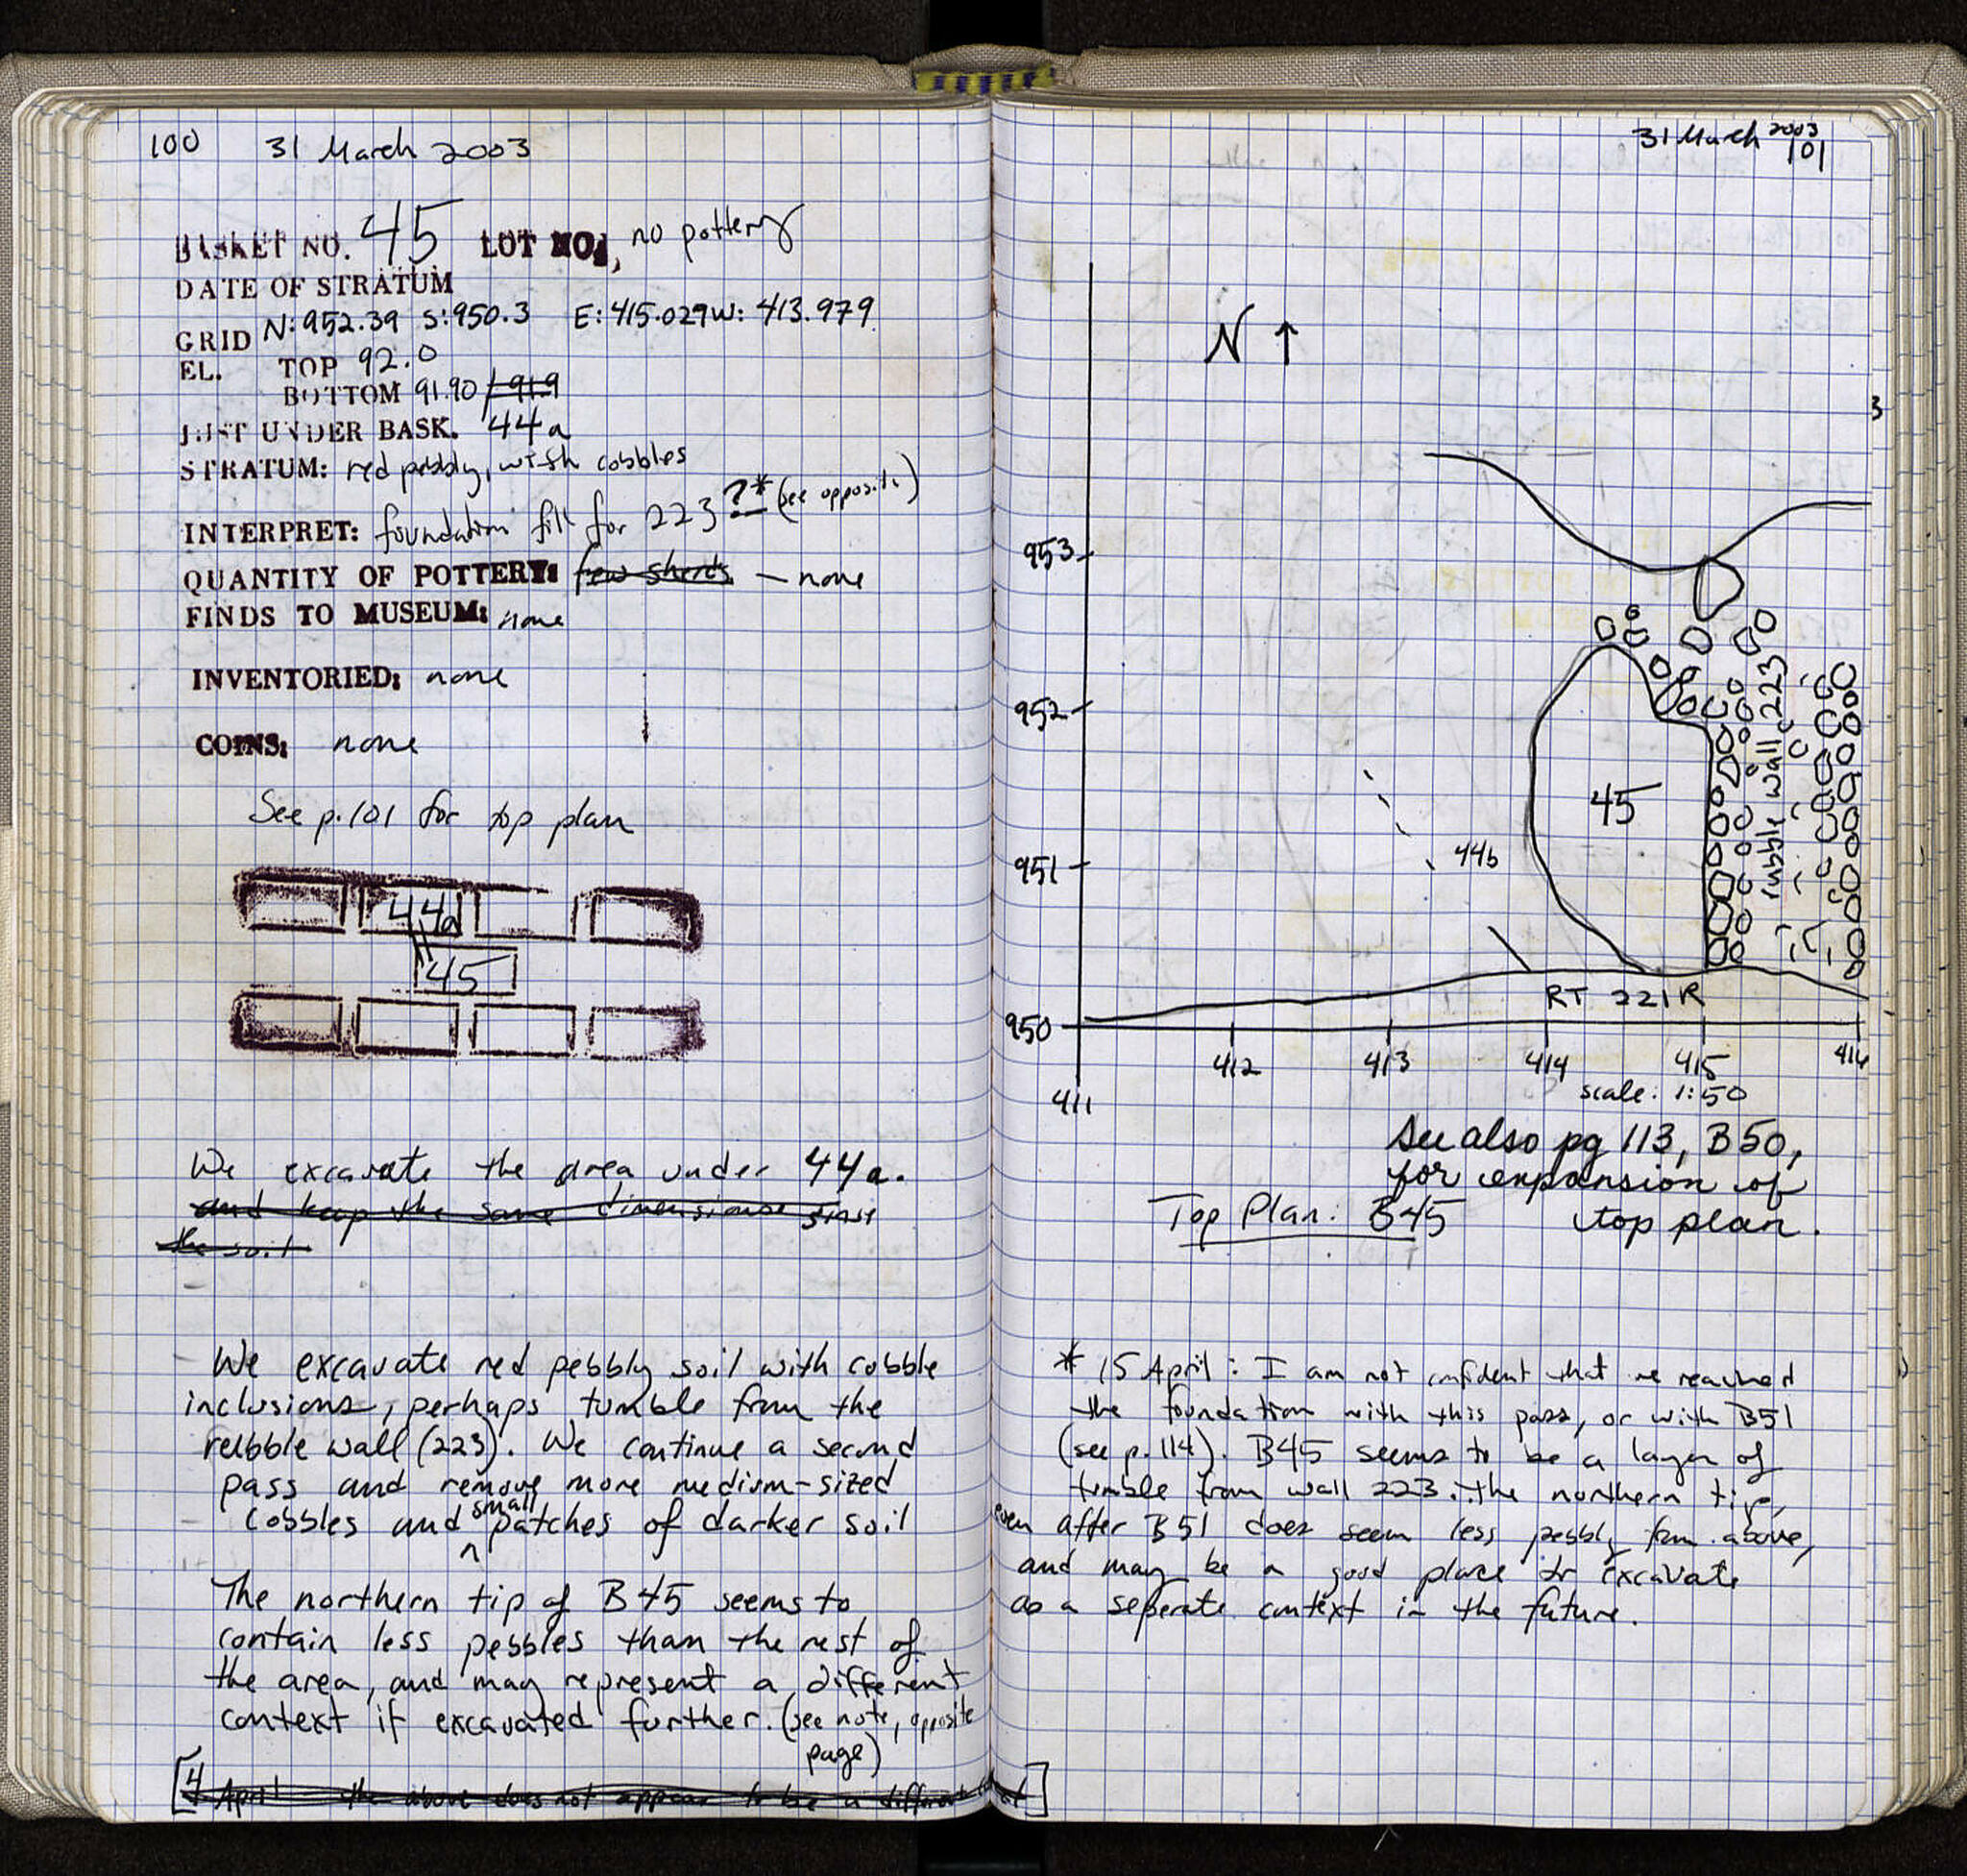 100 31 March 2003
BASKET NO. 45 LOT NO., no pottery
DATE OF STRATUM
GRID N: 952.39 S: 950.3 E: 415.029 W: 413.979
EL. TOP 92.0
BOTTOM 91.90 / 91.9
JUST UNDER BASK. 44a
STRATUM: red pebbly, with cobbles
INTERPRET: foundation fill for 223 ?* (see opposite)
QUANTITY OF POTTERY: few sherds – none
FINDS TO MUSEUM: none
INVENTORIED: none
COINS: none
See p.101 for top plan
44a
45
We excavate the area under 44a.
and keep the same dimensions since
the soil
We excavate red pebbly soil with cobble
inclusions, perhaps tumble from the
relbble wall (223). We continue a second
pass and remove more medium-sized
cobbles and small patches of darker soil
The northern tip of B45 seems to
contain less pebbles than the rest of
the area, and may represent a different
context if excavated further. (see note, opposite
page)
[4 April the above does not appear to be a different
31 March 2003
101
N ↑
953
952
951
950
45
44b
rubble wall 223
RT 221R
411
412
413
414
415
416
scale: 1:50
See also pg 113, B50,
for expansion of
top plan.
Top Plan: B45
* 15 April: I am not confident that we reached
the foundation with this pass, or with B51
(see p. 114). B45 seems to be a layer of
tumble from wall 223. The northern tip,
even after B51 does seem less pebbly from above,
and may be a good place to excavate
as a seperate context in the future.